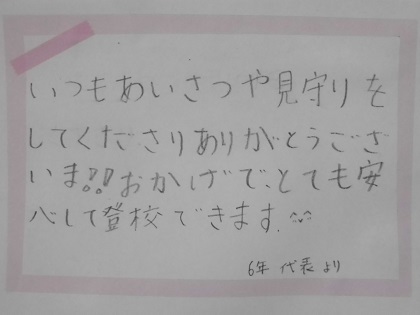 いつもあいさつや見守りを
してくださりありがとうござ
いま!!おかげで、とても安
心して登校できます。^^
6年 代表より